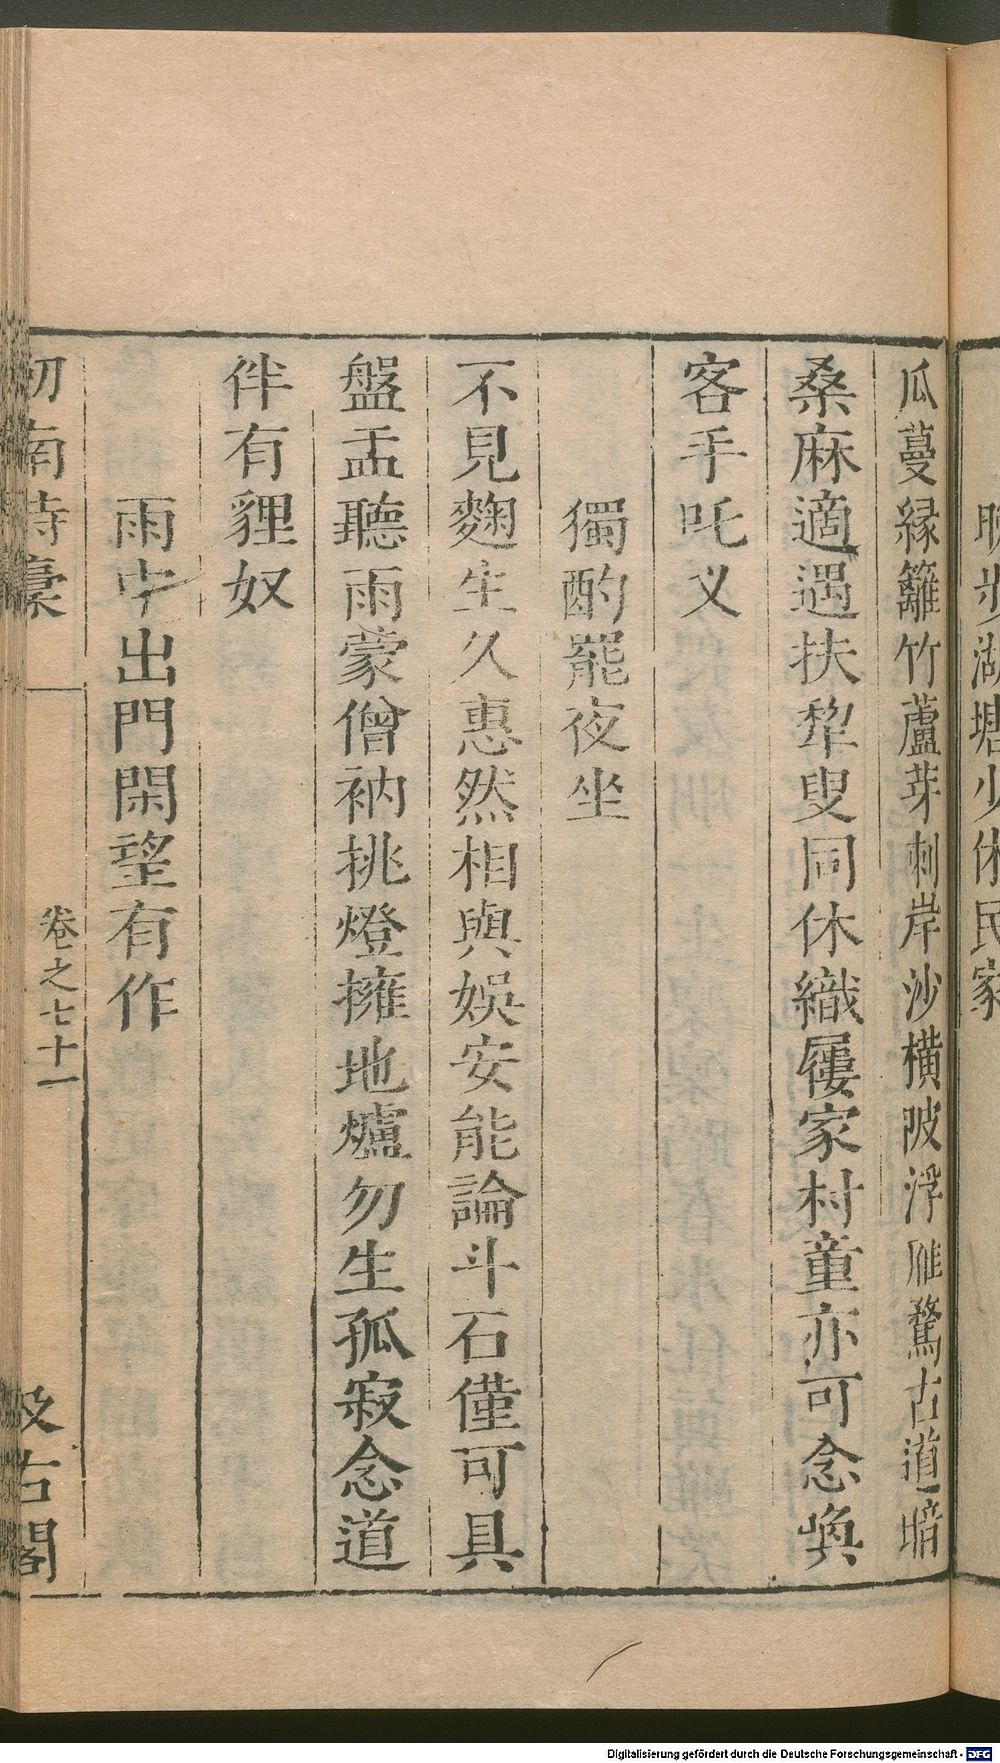 晚步湖塘少休民家
瓜蔓緣籬竹蘆芽刺岸沙橫陂浮雁騖古道暗
桑麻適遇扶犂叟同休織屨家村童亦可念喚
客手吒义
獨酌罷夜坐
不見麴生久惠然相與娛安能論斗石僅可具
盤盂聽雨蒙僧衲挑燈擁地爐勿生孤寂念道
伴有貍奴
雨中出門閑望有作
劒南詩稾 卷之七十一 汲古閣
Digitalisierung gefördert durch die Deutsche Forschungsgemeinschaft - DFG